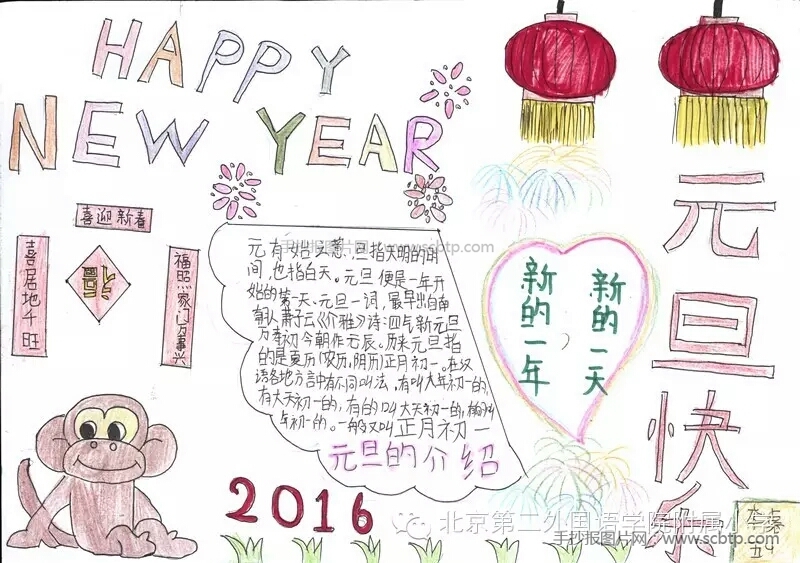 HAPPY
NEW YEAR
元旦快乐
喜迎新春
喜居地千旺
福
福照家门万事兴
元有始之意,旦指天明的时
间,也指白天。元旦便是一年开
始的第一天、元旦一词,最早出自南
朝人萧子云《介雅》诗:四气新元旦
万寿初今朝作
辰。历来元旦指
的是夏历(农历,阴历)正月初一。在汉
语各地方言中有不同叫法,有叫大年初一的,
有大天初一的,有的叫大天初一的,
年初一的。一般又叫正月初一
元旦的介绍
新的一天
新的一年
2016
手抄报图片网 www.scbtp.com
北京第二外国语学院附属小学
手抄报图片网
www.scbtp.com